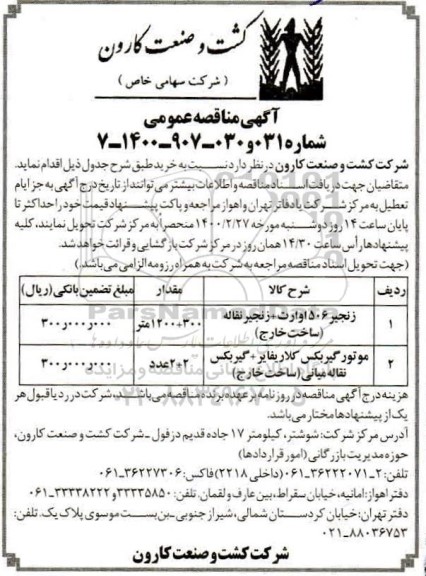 کشت و صنعت کارون
( شرکت سهامی خاص )
آگهی مناقصه عمومی
شماره ۰۳۱ و ۰۳۰-۹۰۷-۱۴۰۰-۷
شرکت کشت و صنعت کارون در نظر دارد نسبت به خرید طبق شرح جدول ذیل اقدام نماید.
متقاضیان جهت دریافت اسناد مناقصه و اطلاعات بیشتر می توانند از تاریخ درج آگهی به جز ایام
تعطیل به مرکز شرکت یا دفاتر تهران و اهواز مراجعه و پاکت پیشنهاد قیمت خود را حداکثر تا
پایان ساعت ۱۴ روز دوشنبه مورخه ۱۴۰۰/۲/۲۷ منحصراً به مرکز شرکت تحویل نمایند، کلیه
پیشنهادها رأس ساعت ۱۴/۳۰ همان روز در مرکز شرکت بازگشایی و قرائت خواهد شد.
(جهت تحویل اسناد مناقصه مراجعه به شرکت به همراه رزومه الزامی می باشد.)
ردیف شرح کالا مقدار مبلغ تضمین بانکی (ریال)
۱ زنجیر ۱۵۰۶ وارت + زنجیر نقاله (ساخت خارج) ۱۲۰۰+۳۰۰ متر ۳۰۰,۰۰۰,۰۰۰
۲ موتور گیربکس کلاریفایر + گیربکس نقاله میانی (ساخت خارج) ۲+۲ عدد ۳۰۰,۰۰۰,۰۰۰
هزینه درج آگهی مناقصه در روزنامه بر عهده برنده مناقصه می باشد. شرکت در رد یا قبول هر
یک از پیشنهادها مختار می باشد.
آدرس مرکز شرکت: شوشتر، کیلومتر ۱۷ جاده قدیم دزفول - شرکت کشت و صنعت کارون،
حوزه مدیریت بازرگانی (امور قراردادها)
تلفن: ۲-۳۶۲۲۲۰۷۱-۰۶۱ (داخلی ۲۲۱۸) فاکس: ۳۶۲۲۷۳۰۶-۰۶۱
دفتر اهواز: امانیه، خیابان سقراط، بین عارف و لقمان. تلفن: ۳۳۳۳۵۸۵۰ و ۳۳۳۳۸۲۲۲-۰۶۱
دفتر تهران: خیابان کردستان شمالی، شیراز جنوبی - بن بست موسوی پلاک یک. تلفن:
۸۸۰۳۶۷۵۳-۰۲۱
شرکت کشت و صنعت کارون